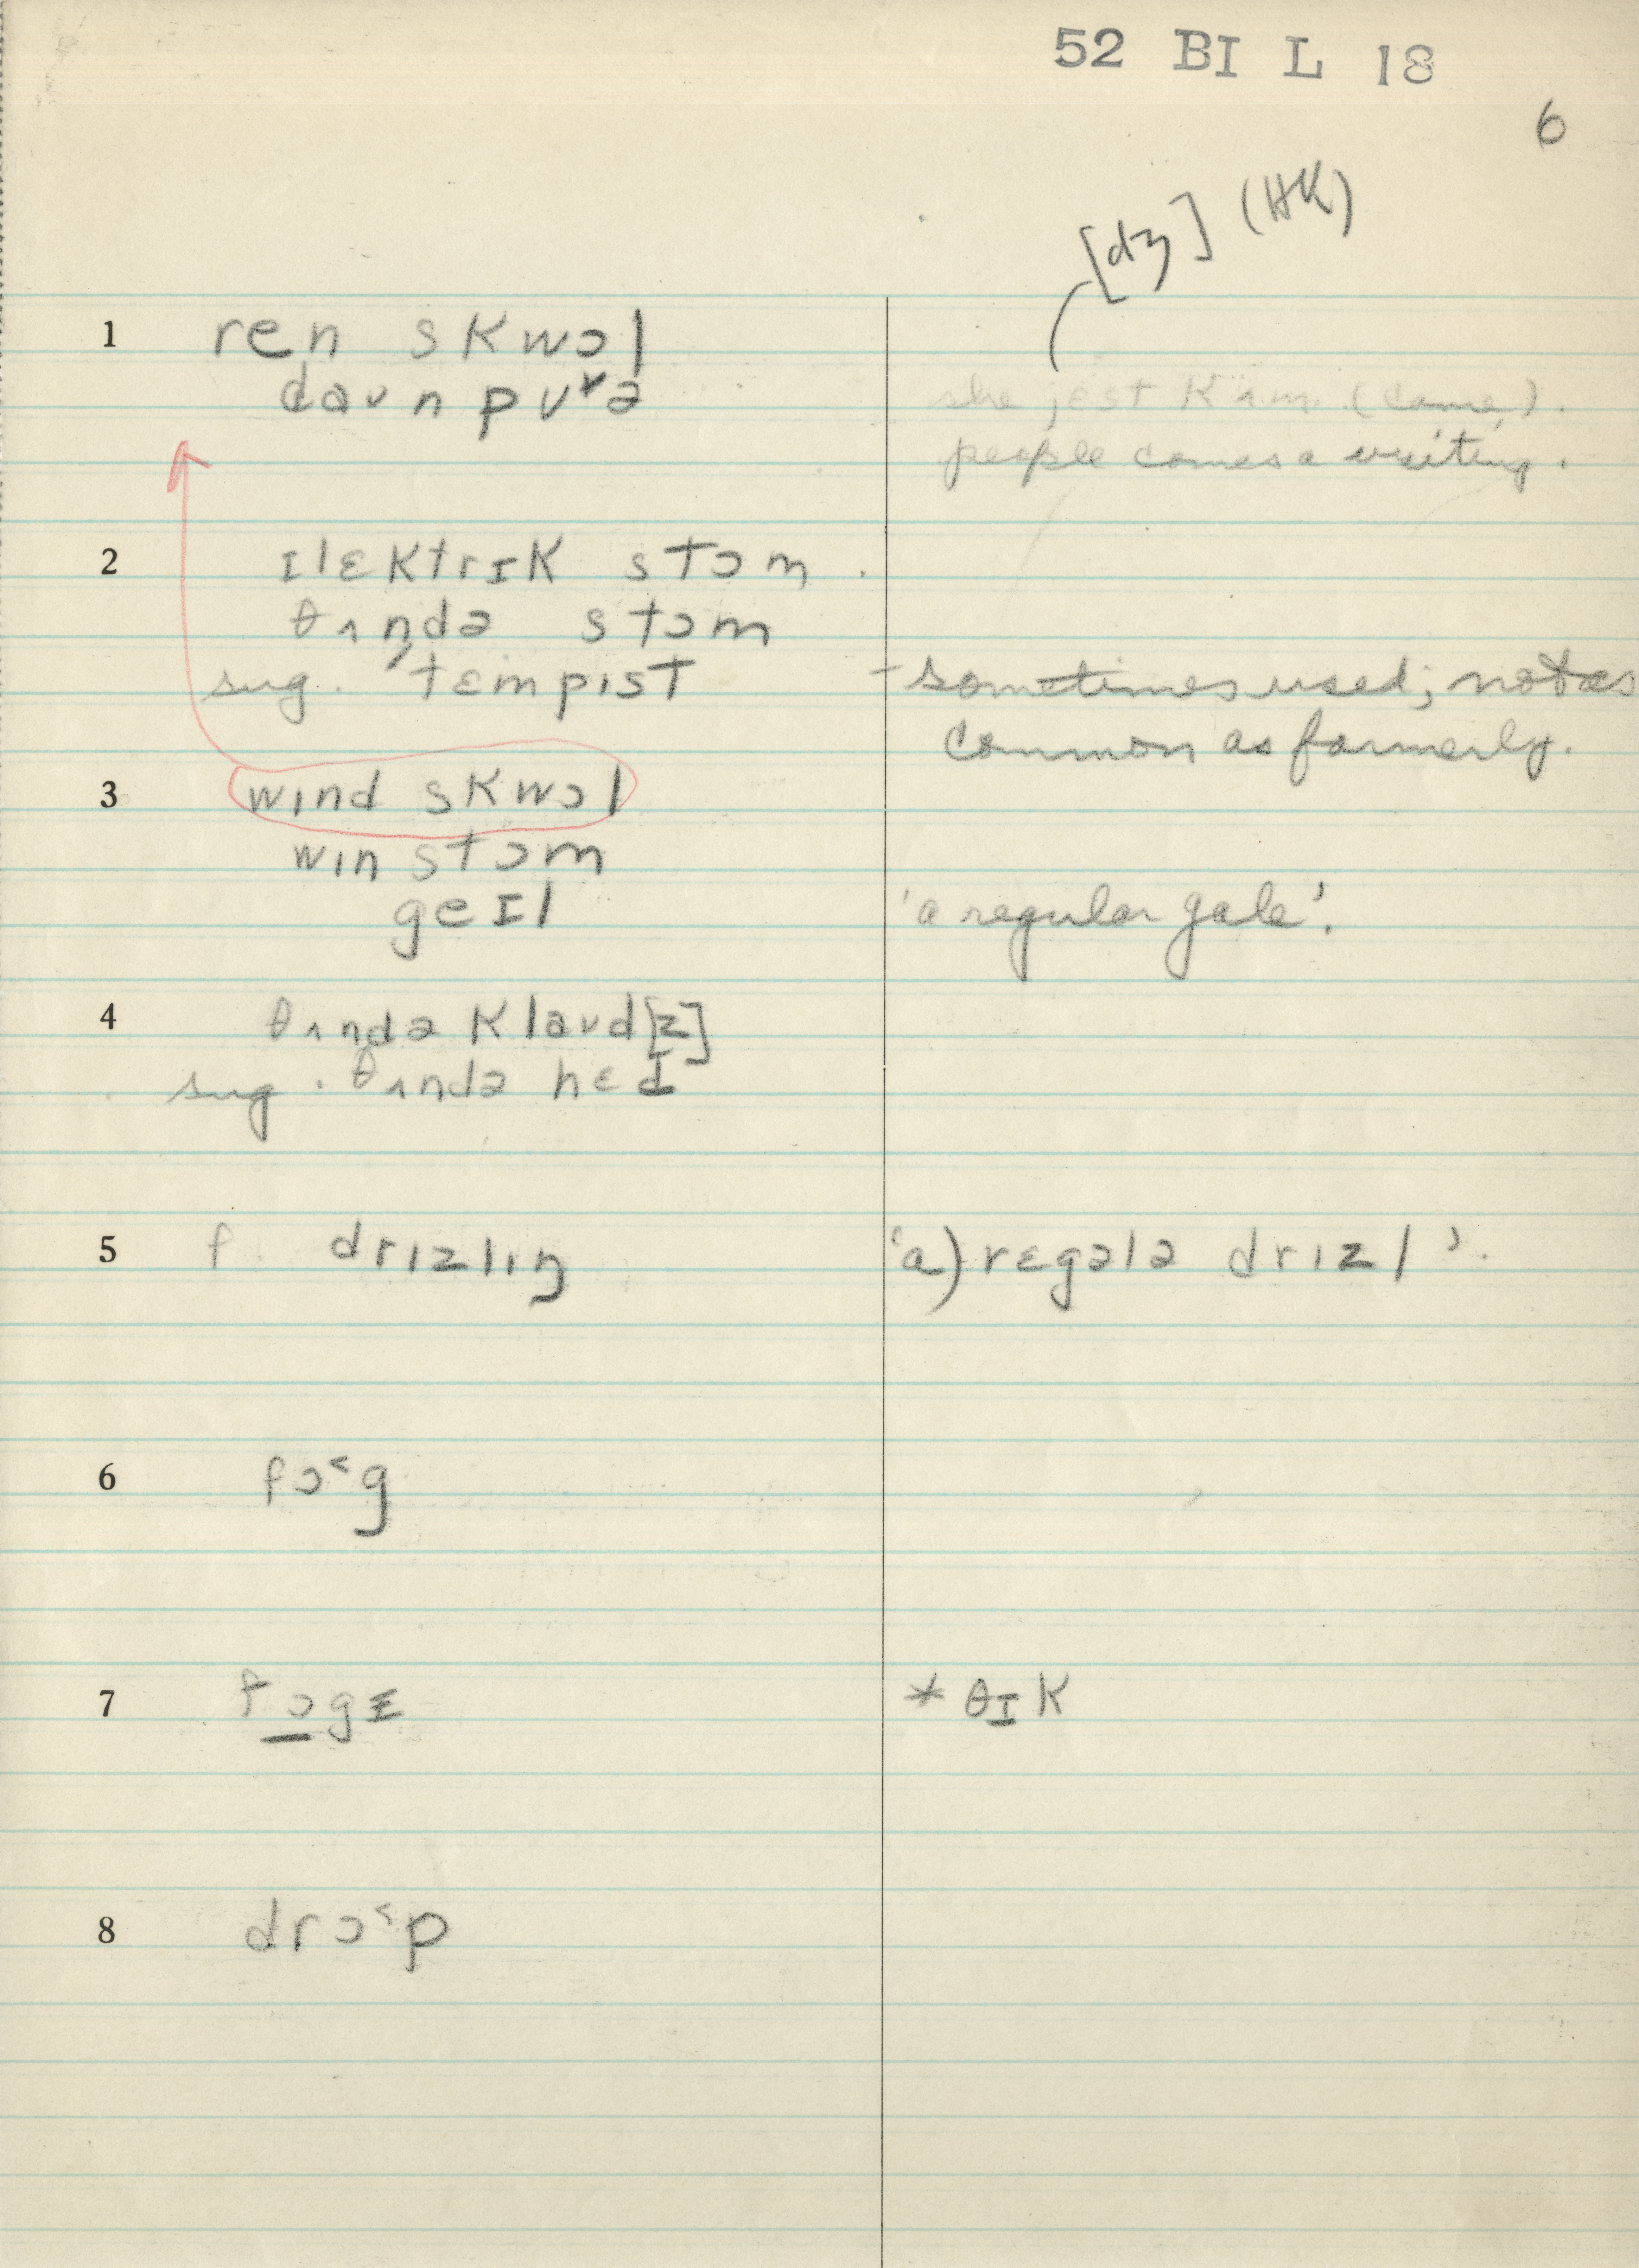 52 BI L 18
6
[dʒ] (HK)
1 ren skwɔl
daʊn pʊ˅ə
she jest kʌm (came).
people comes a visiting.
2 ɪlɛktrɪk stɔm.
θʌndə stɔm
sug. 'tɛmpɪst - sometimes used; not as
common as formerly.
3 wɪnd skwɔl
wɪn stɔm
geɪl 'a regular gale'.
4 θʌndə klaʊd[z]
sug. θʌndə hɛd
5 f. drɪzlɪŋ 'a) rɛgələ drɪzl'.
6 fɔ˂g
7 fɔgɪ * θɪk
8 drɔ˂p